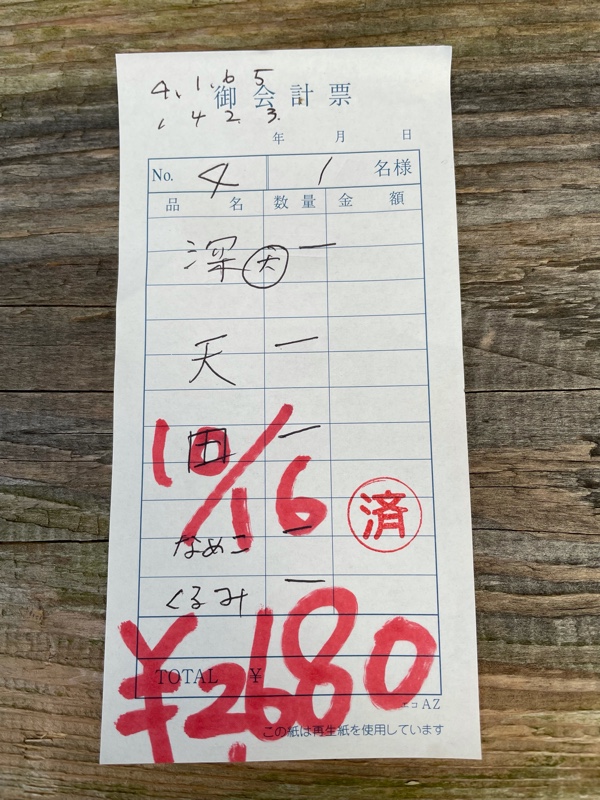 4、1、6 5
御会計票
1 4 2 3.
年 月 日
No. 4 1 名様
品名 数量 金額
深 大 一
天 一
田 一
10/16
済
なめこ 一
くるみ 一
TOTAL ¥
¥2,680
エコAZ
この紙は再生紙を使用しています